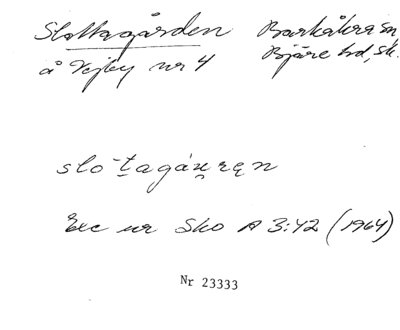 Slottagården Barkåkra sn
å Vejby nr 4 Bjäre hd, Sk.
slo-tagáu̯ręn
Exc ur Sko A 3:42 (1964)
Nr 23333